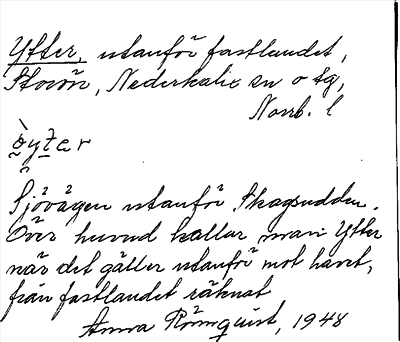 Ytter, utanför fastlandet,
Storön, Nederkalix sn o tg,
Norrb. l
Sjövägen utanför Skagsudden.
Över huvud kallar man Ytter
när det gäller utanför mot havet,
från fastlandet räknat
Anna Rönnquist, 1948